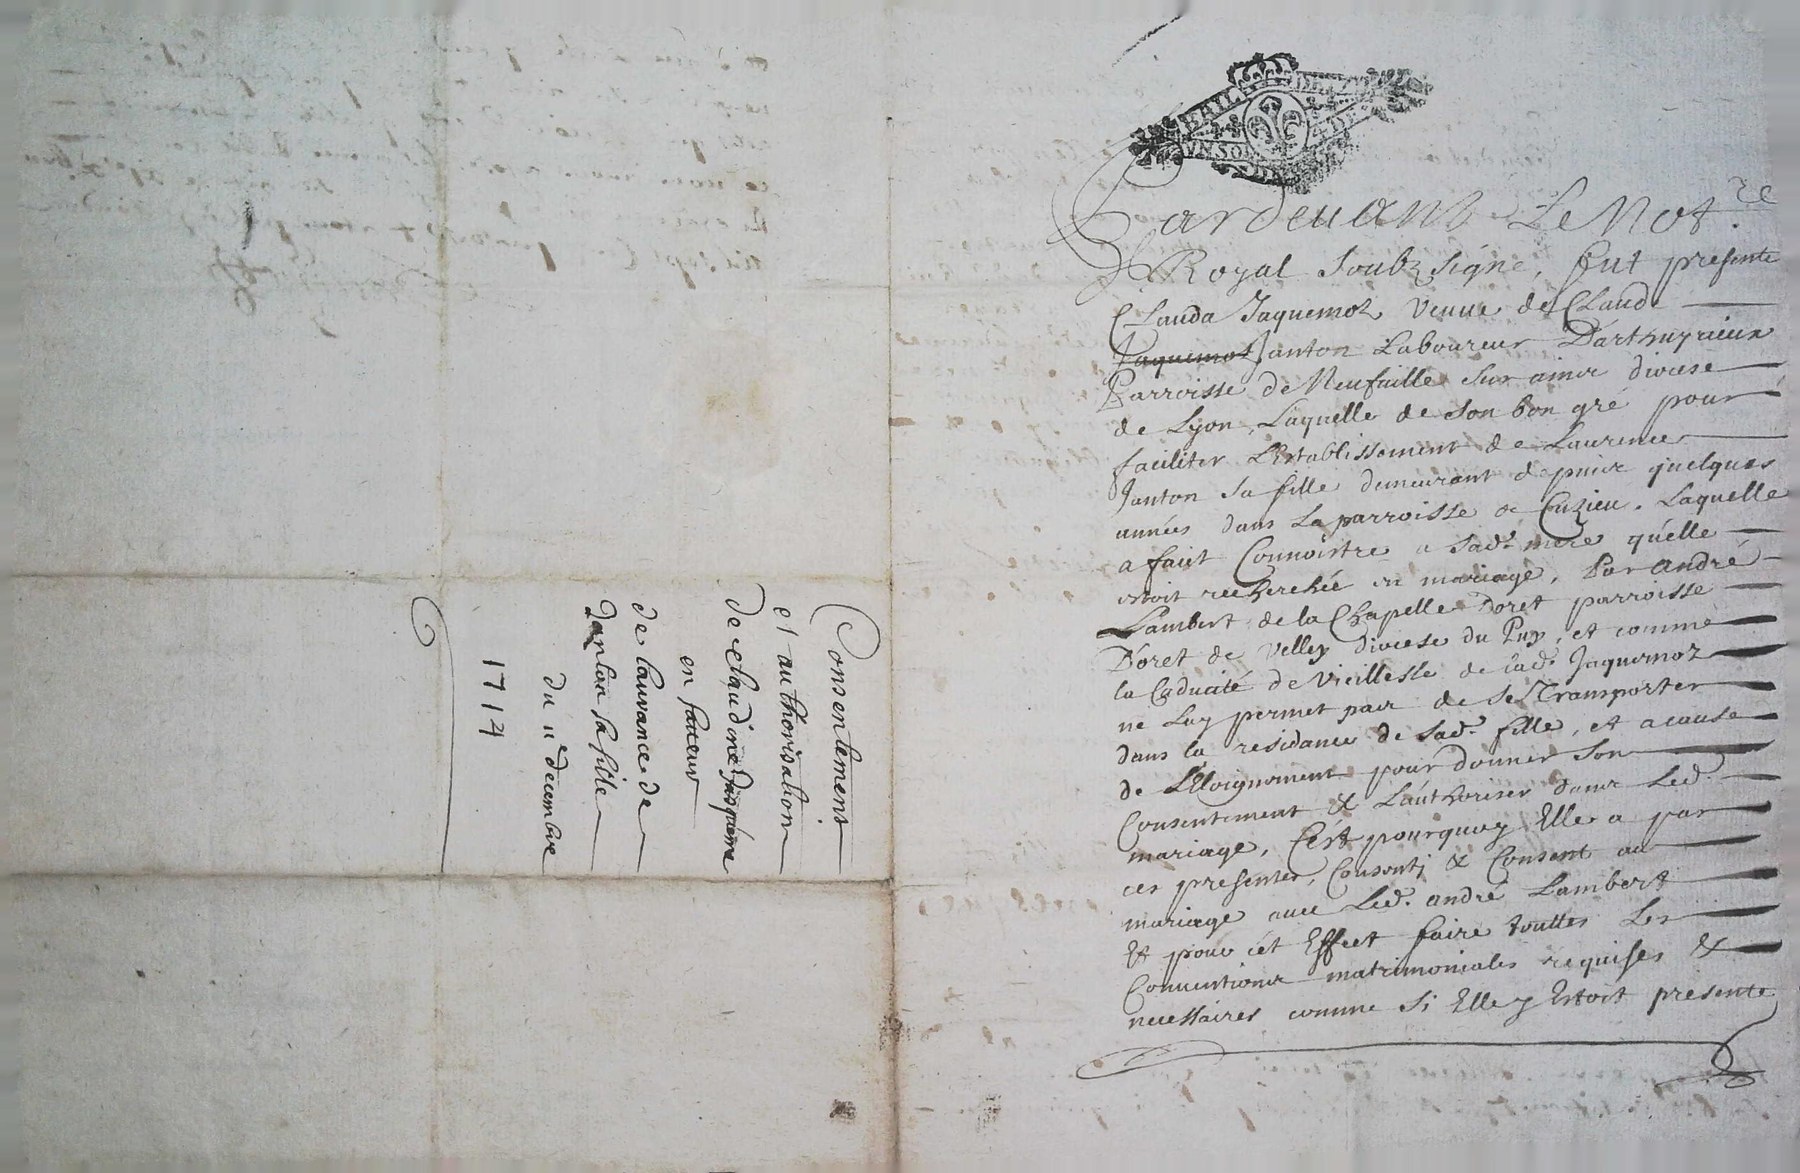 Consentement
et authorisation
de Claudine Jaquème
en faveur
de Lauvance de
Janton sa fille
du 11e decembre
1714
UN SOL
Pardeuant Le Not.re
Royal Soubzsigné, fut presente
Clauda Jaquemoz veuue de Claude
Jaquemot Janton Laboureur D'arthuyrieux
Parroisse de Neufuille sur ainz diocese
de Lyon, Laquelle de son bon gré pour
faciliter L'Establissement de Laurence
Janton sa fille demeurant depuis quelques
années dans La parroisse de Cuzieu. Laquelle
a fait Connoistre a sad.e mere qu'elle
estoit recherchée en mariage, Par André
Lambert de la Chapelle Doret parroisse
D'oret de Velley diocese du Puy, et comme
la Caducité de Vieillesse de lad.e Jaquemoz
ne Luy permet pas de se Transporter
dans la residance de sad.e fille, et a cause
de L'Eloignement pour donner son
Consentement & L'authoriser dans Led.
mariage, C'est pourquoy Elle a par
ces presentes, Consenti & Consent au
mariage auec Led. andré Lambert
Et pour cét Effect faire touttes Les
Conuentions matrimoniales requises &
necessaires comme si Elle y Estoit presente